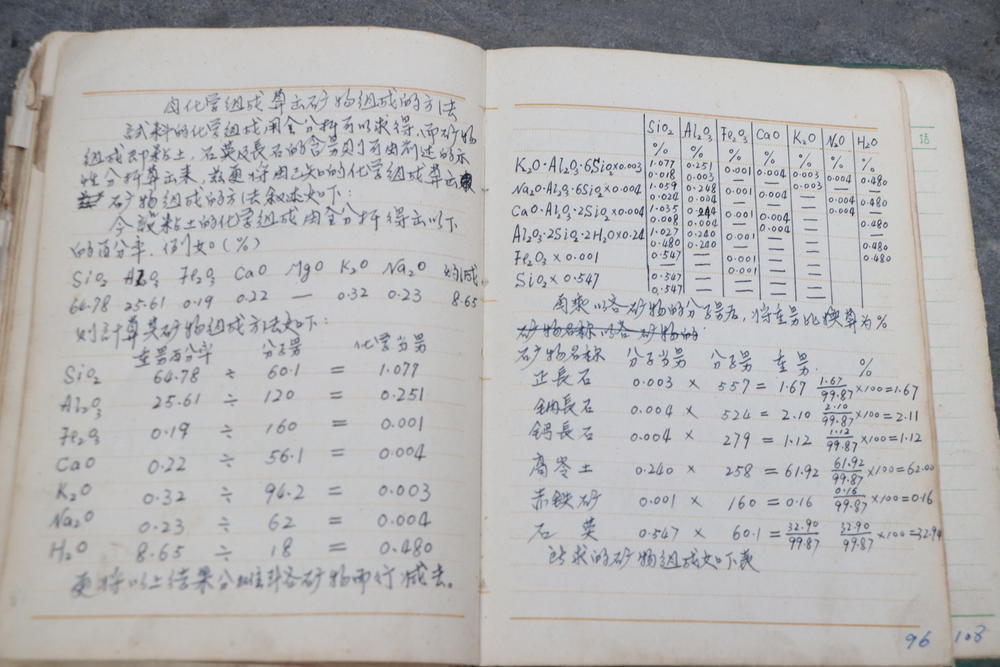 由化学组成算出矿物组成的方法
試料的化学组成用全分析可以求得,而矿物
组成即粘土,石英及長石的含量则可由前述的示
性分析算出来,兹更将由已知的化学组成算出
矿物组成的方法叙述如下:
今設粘土的化学组成用全分析得出以下
的百分率.例如(%)
SiO₂ Al₂O₃ Fe₂O₃ CaO MgO K₂O Na₂O 灼减
64.78 25.61 0.19 0.22 — 0.32 0.23 8.65
则計算其矿物组成方法如下:
重量百分率 分子量 化学当量
SiO₂ 64.78 ÷ 60.1 = 1.077
Al₂O₃ 25.61 ÷ 120 = 0.251
Fe₂O₃ 0.19 ÷ 160 = 0.001
CaO 0.22 ÷ 56.1 = 0.004
K₂O 0.32 ÷ 94.2 = 0.003
Na₂O 0.23 ÷ 62 = 0.004
H₂O 8.65 ÷ 18 = 0.480
更将以上结果分配到各矿物而行减去。
SiO₂ Al₂O₃ Fe₂O₃ CaO K₂O Na₂O H₂O
% % % % % % %
1.077 0.251 0.001 0.004 0.003 0.004 0.480
K₂O·Al₂O₃·6SiO₂×0.003 0.018 0.003 — — 0.003 — —
1.059 0.248 0.001 0.004 — 0.004 0.480
Na₂O·Al₂O₃·6SiO₂×0.004 0.024 0.004 — — — 0.004 —
1.035 0.244 0.001 0.004 — — 0.480
CaO·Al₂O₃·2SiO₂×0.004 0.008 0.004 — 0.004 — — —
1.027 0.240 0.001 — — — 0.480
Al₂O₃·2SiO₂·2H₂O×0.24 0.480 0.240 — — — — 0.480
0.547 — 0.001 — — — —
Fe₂O₃×0.001 — — 0.001 — — —
0.547 — — —
SiO₂×0.547 0.547 — — —
再乘以各矿物的分子量后,将重量比换算为%
矿物名称 分子当量 分子量 重量. %
正長石 0.003 × 557 = 1.67 1.67/99.87 ×100=1.67
鈉長石 0.004 × 524 = 2.10 2.10/99.87 ×100=2.11
鈣長石 0.004 × 279 = 1.12 1.12/99.87 ×100=1.12
高岺土 0.240 × 258 = 61.92 61.92/99.87 ×100=62.00
赤鉄矿 0.001 × 160 = 0.16 0.16/99.87 ×100=0.16
石英 0.547 × 60.1 = 32.90/99.87 32.90/99.87 ×100=32.94
所求的矿物组成如下表
96 108